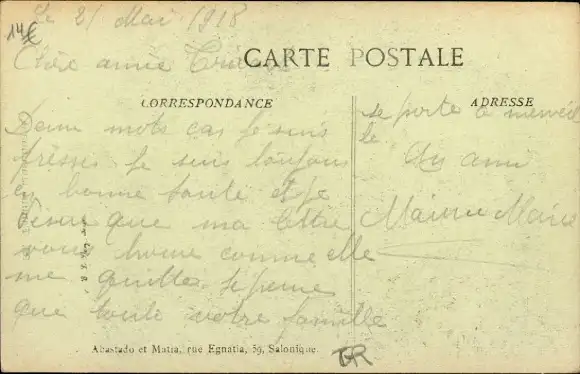 14€
Le 21 Mai 1918
CARTE POSTALE
Chère amie
CORRESPONDANCE
ADRESSE
Deux mots car Je suis
presses Je suis toujours
en bonne sante et je
que ma lettre
vous comme elle
me quitte Je pense
que toute votre famille
se porte a merveil
le
Un ami
Abastado et Matia, rue Egnatia, 59, Salonique.
GR